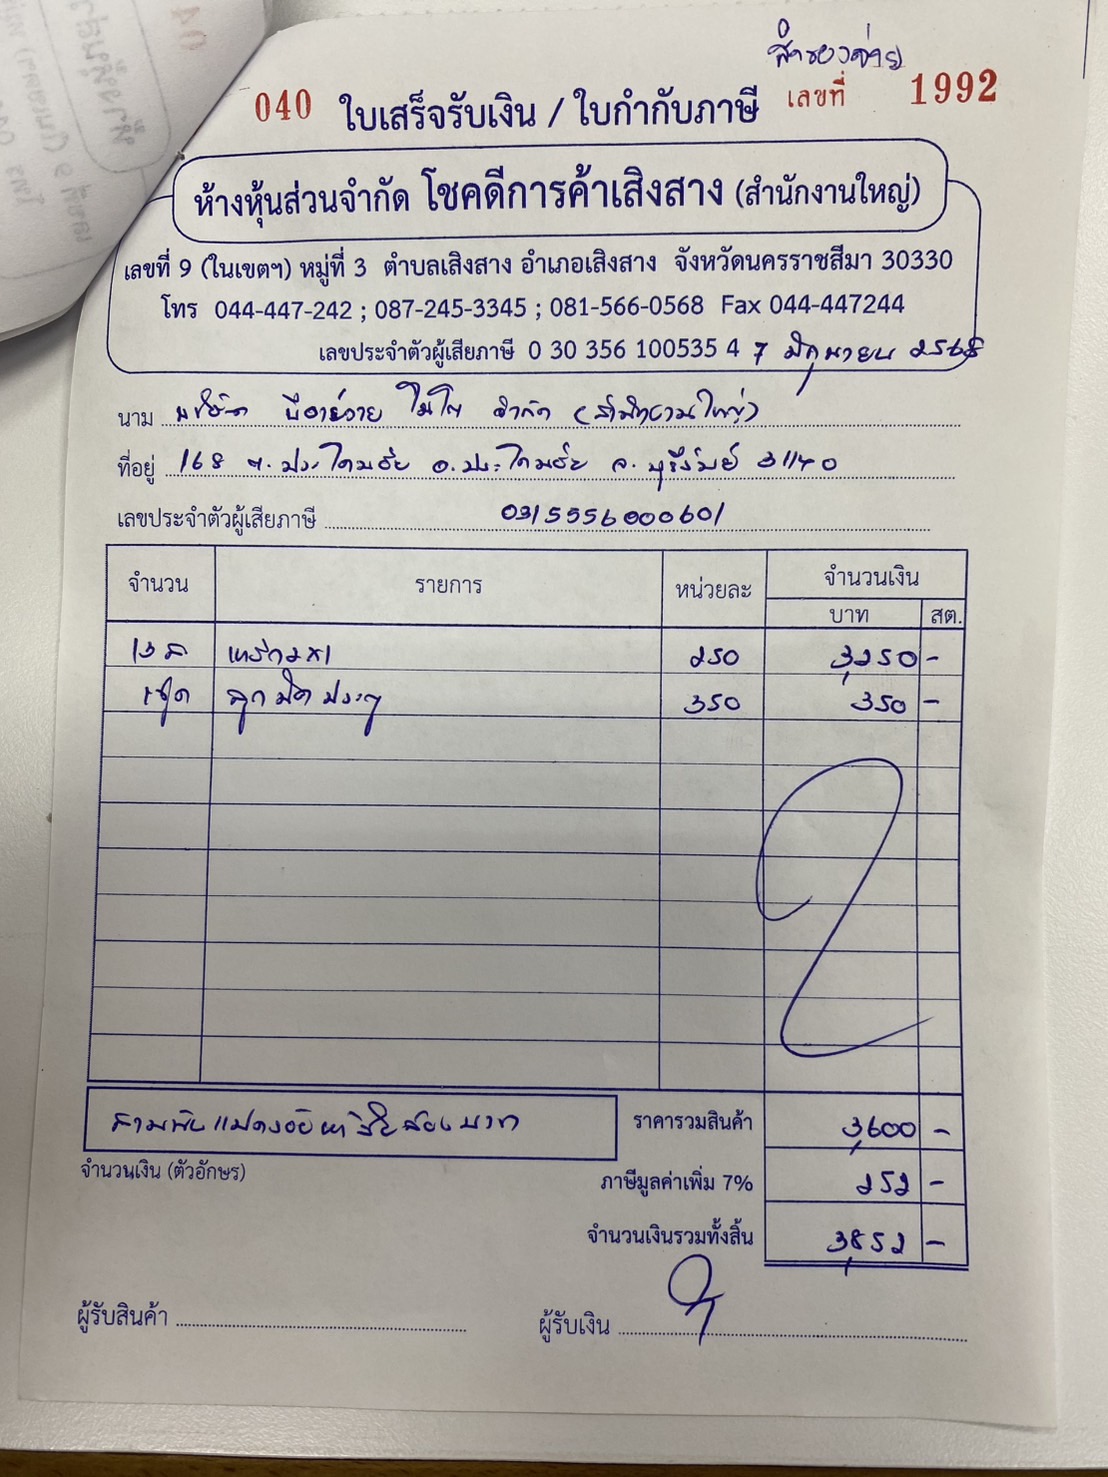 สำรองจ่าย
040 ใบเสร็จรับเงิน / ใบกำกับภาษี เลขที่ 1992
ห้างหุ้นส่วนจำกัด โชคดีการค้าเสิงสาง (สำนักงานใหญ่)
เลขที่ 9 (ในเขตฯ) หมู่ที่ 3 ตำบลเสิงสาง อำเภอเสิงสาง จังหวัดนครราชสีมา 30330
โทร 044-447-242 ; 087-245-3345 ; 081-566-0568 Fax 044-447244
เลขประจำตัวผู้เสียภาษี 0 30 356 100535 4 7 มิถุนายน 2568
นาม บริษัท จำกัด (สำนักงานใหญ่)
ที่อยู่ 168 ต.ประโคนชัย อ.ประโคนชัย จ.บุรีรัมย์ 31140
เลขประจำตัวผู้เสียภาษี 0315556000601
จำนวน รายการ หน่วยละ จำนวนเงิน
บาท สต.
13 250 3,250 -
1ชุด ลูก 350 350 -
สามพันแปดร้อยห้าสิบสองบาท ราคารวมสินค้า 3,600 -
จำนวนเงิน (ตัวอักษร) ภาษีมูลค่าเพิ่ม 7% 252 -
จำนวนเงินรวมทั้งสิ้น 3,852 -
ผู้รับสินค้า ผู้รับเงิน